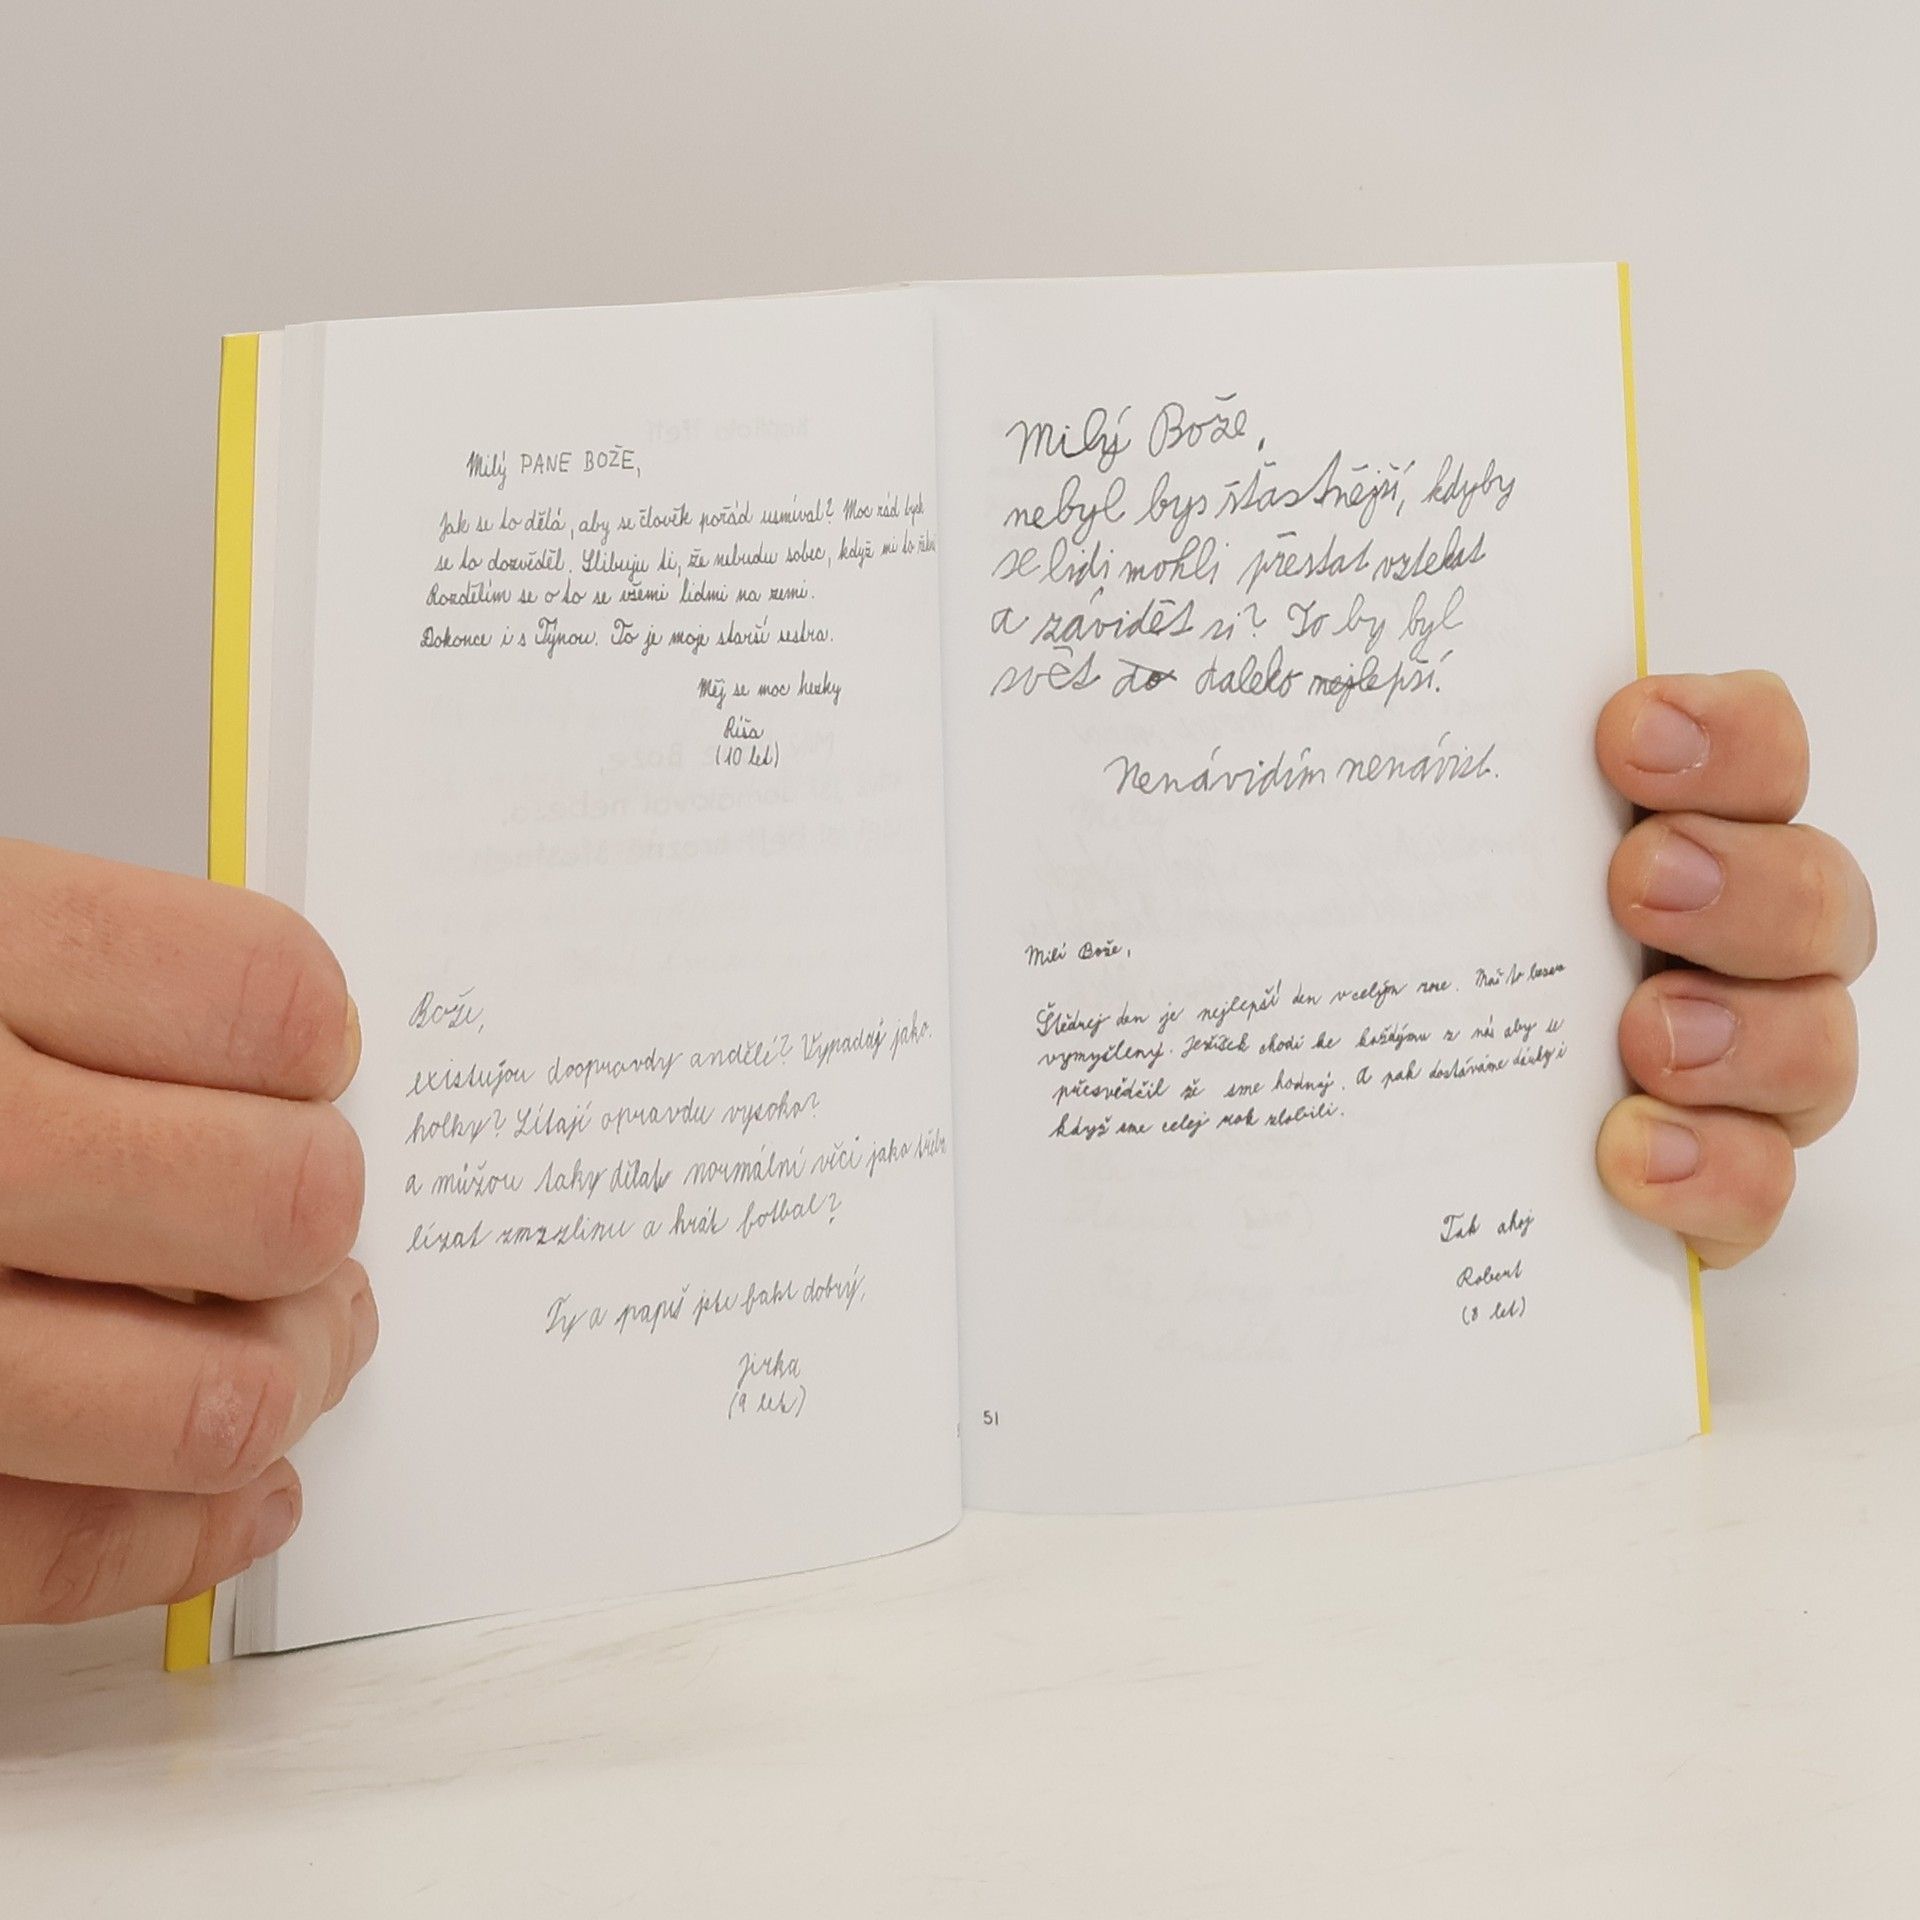 Milý PANE BOŽE,
Jak se to dělá, aby se člověk pořád usmíval? Moc rád bych
se to dozvěděl. Slibuju ti, že nebudu sobec, když mi to
Rozdělím se o to se všemi lidmi na zemi.
Dokonce i s Týnou. To je moje starší sestra.
Měj se moc hezky
Ríša
(10 let)
Bože,
existujou doopravdy andělé? Vypadaj jako
holky? Lítají opravdu vysoko?
a můžou taky dělat normální věci jako třeba
lízat zmzzlinu a hrát fotbal?
Ty a papiš jste fakt dobrý,
Jirka
(9 let)
Milý Bože,
nebyl bys šťastnější, kdyby
se lidi mohli přestat vztekat
a závidět si? To by byl
svět do daleko nejlepší.
Nenávidím nenávist.
51
Milí Bože,
Štědrej den je nejlepší den v celým roce. Máš to
vymyšlený. Ježíšek chodí ke každýmu z nás aby se
přesvědčil že sme hodnej. A pak dostáváme dárky i
když sme celej rok zlobili.
Tak ahoj
Robert
(8 let)